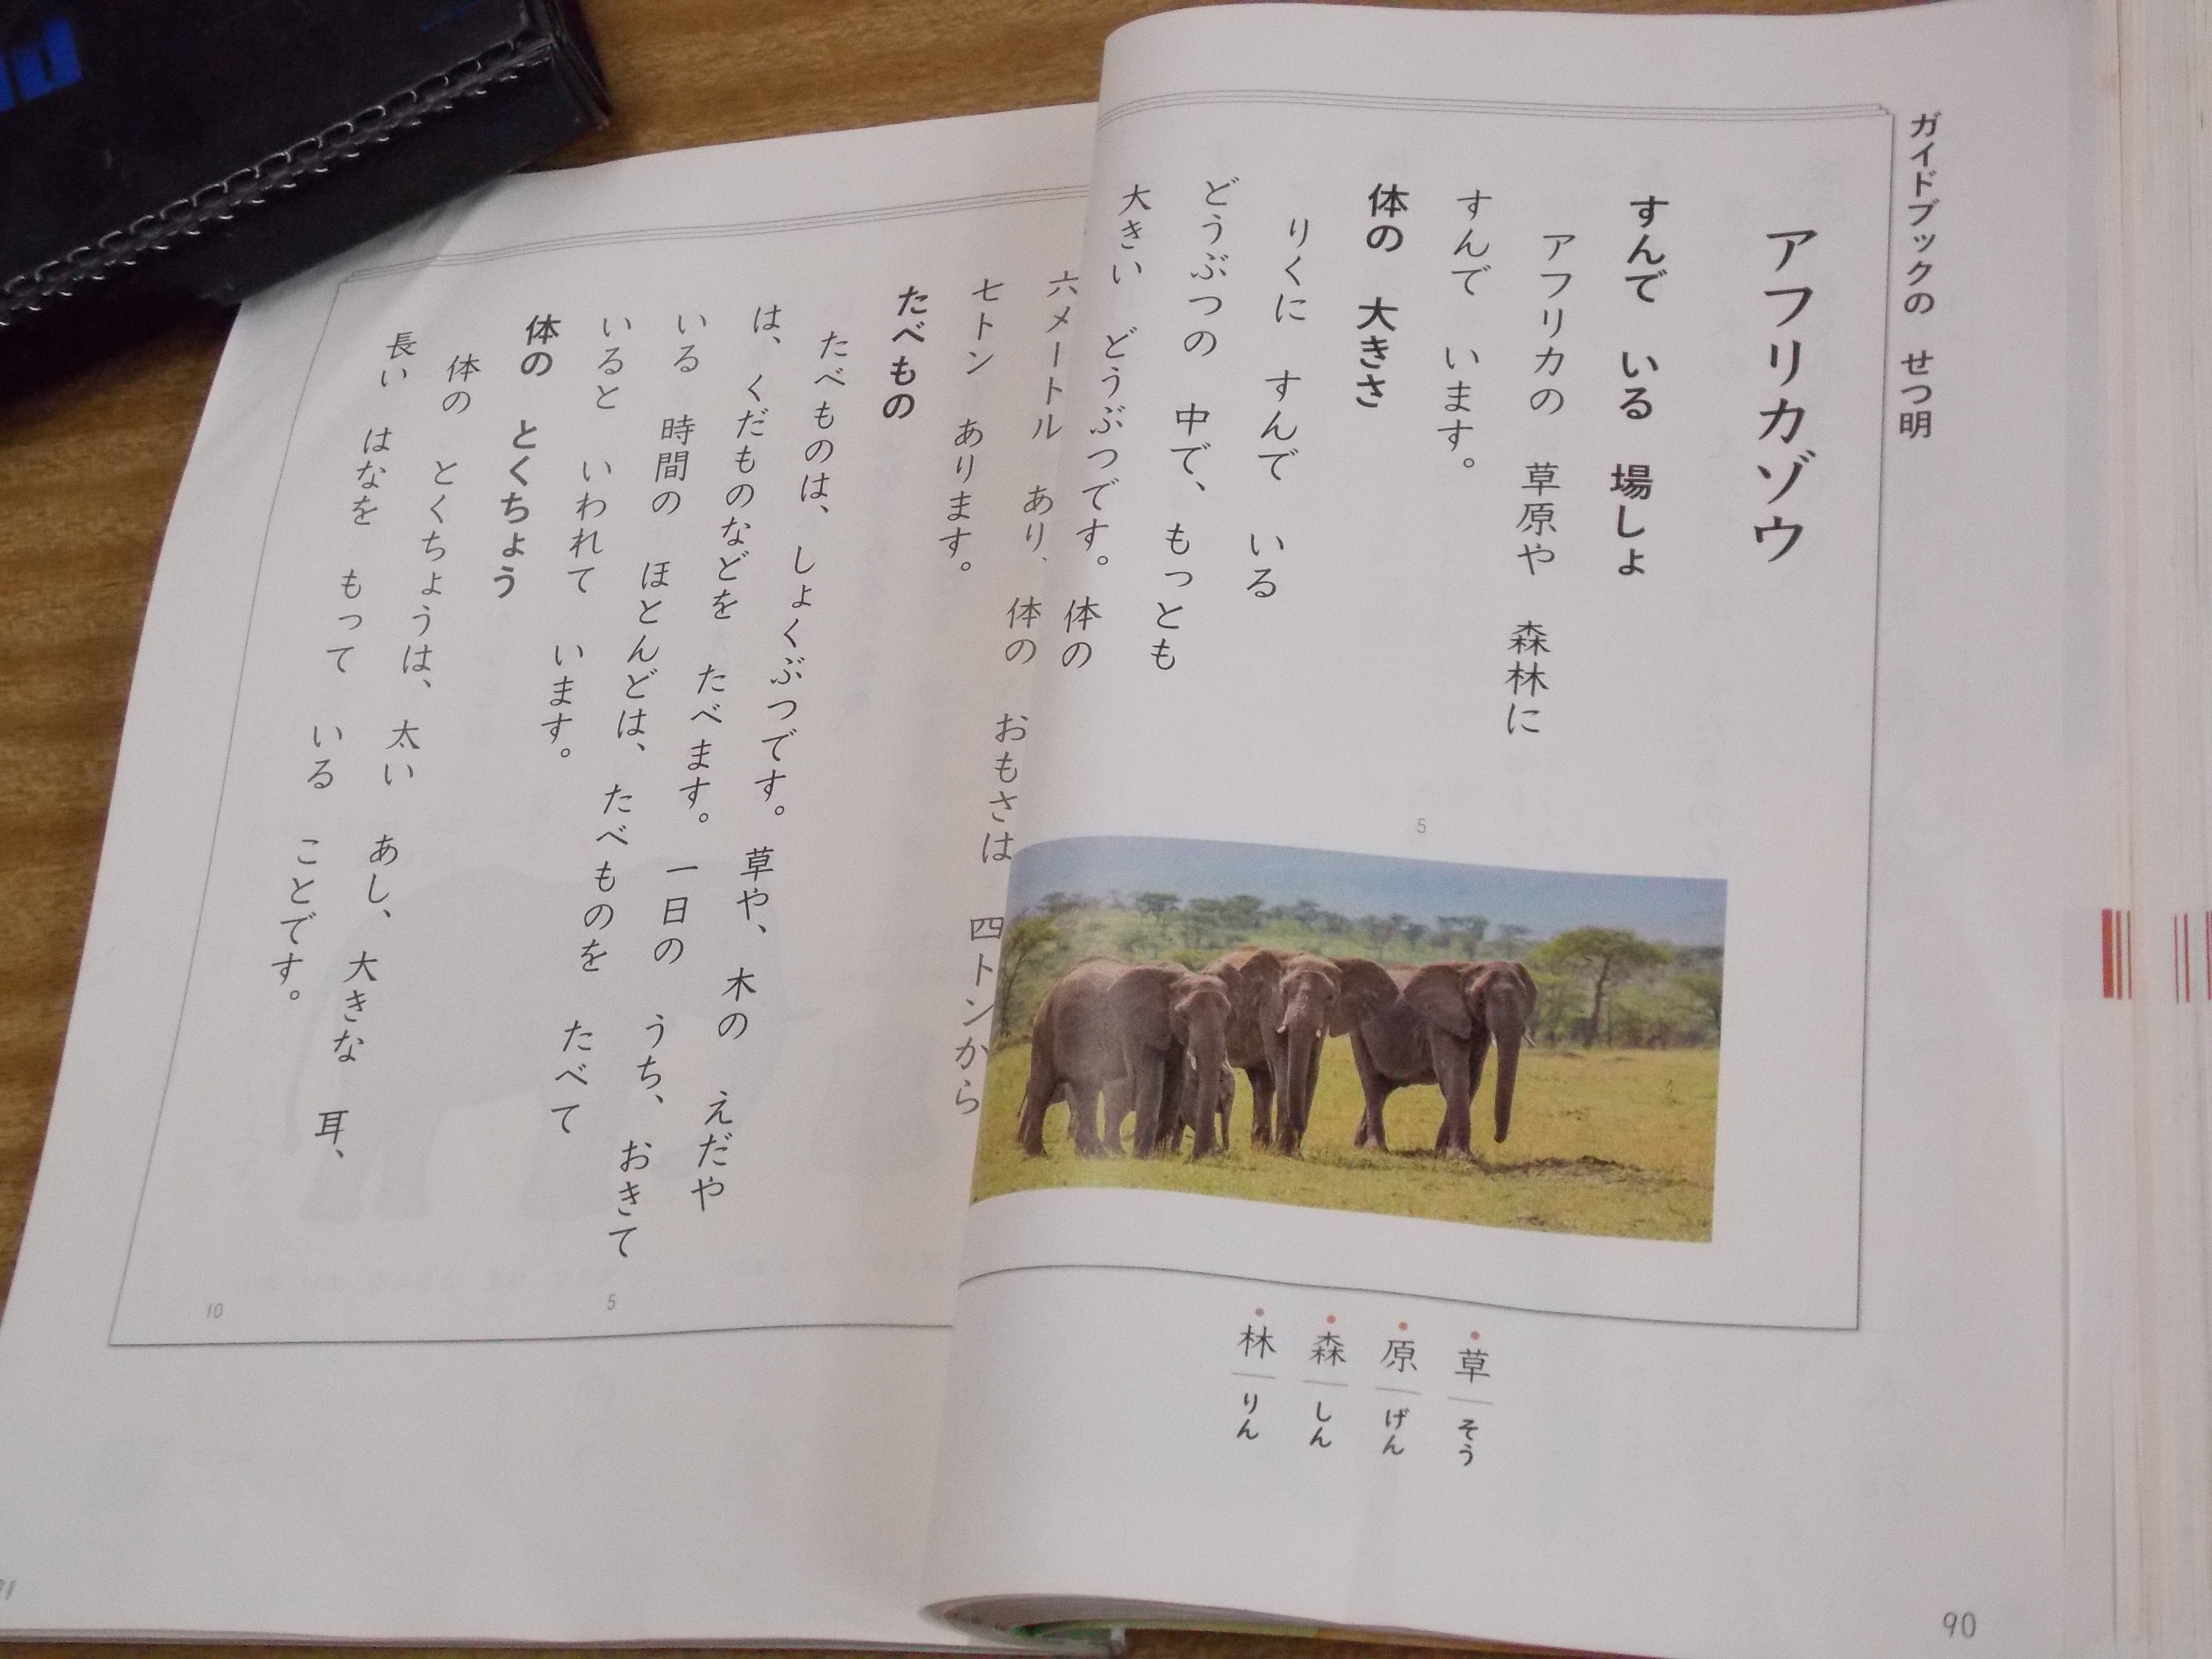 ガイドブックの せつ明
アフリカゾウ
すんで いる 場しょ
アフリカの 草原や 森林に
すんで います。
体の 大きさ
りくに すんで いる
どうぶつの 中で、もっとも
大きい どうぶつです。体の
5
草 そう
原 げん
森 しん
林 りん
90
六メートル あり、体の おもさは 四トンから
七トン あります。
たべもの
たべものは、しょくぶつです。草や、木の えだや
は、くだものなどを たべます。一日の うち、おきて
いる 時間の ほとんどは、たべものを たべて
いると いわれて います。
体の とくちょう
体の とくちょうは、太い あし、大きな 耳、
長い はなを もって いる ことです。
5
10